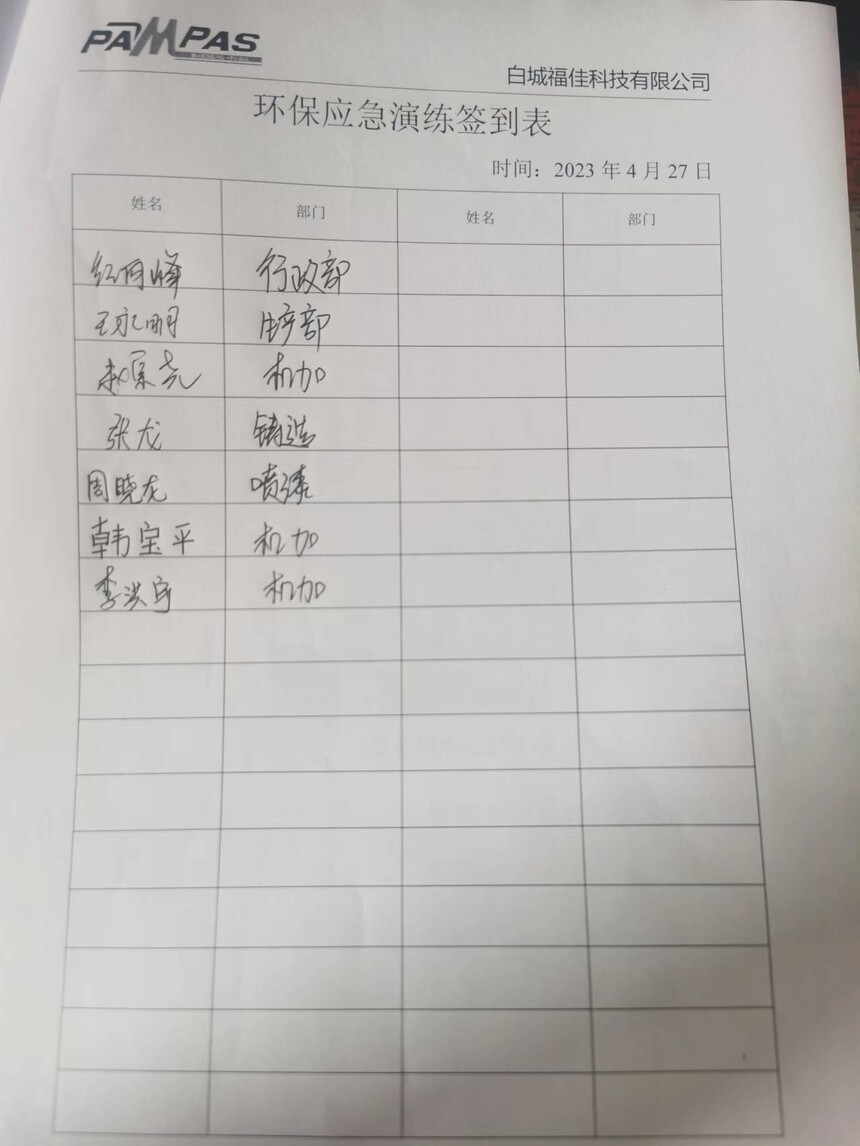 PAMPAS
白城福佳科技有限公司
环保应急演练签到表
时间：2023 年 4 月 27 日
姓名 部门 姓名 部门
行政部
王永明 生产部
机加
张龙 铸造
周晓龙 喷漆
韩宝平 机加
李洪宇 机加